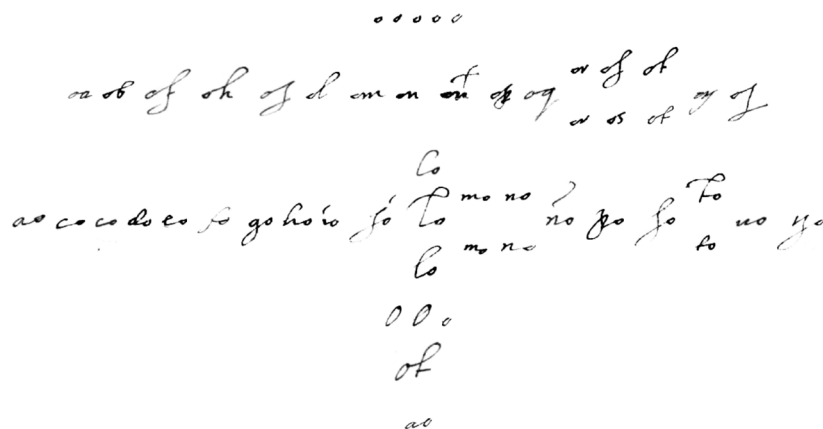 o o o o o
oa ob of oh of d om on on oq
or of ot
or os ot oy of
lo
ao co co do eo fo go ho io jo lo mo no no po so to uo yo
mo no fo
lo
O O o
of
ao